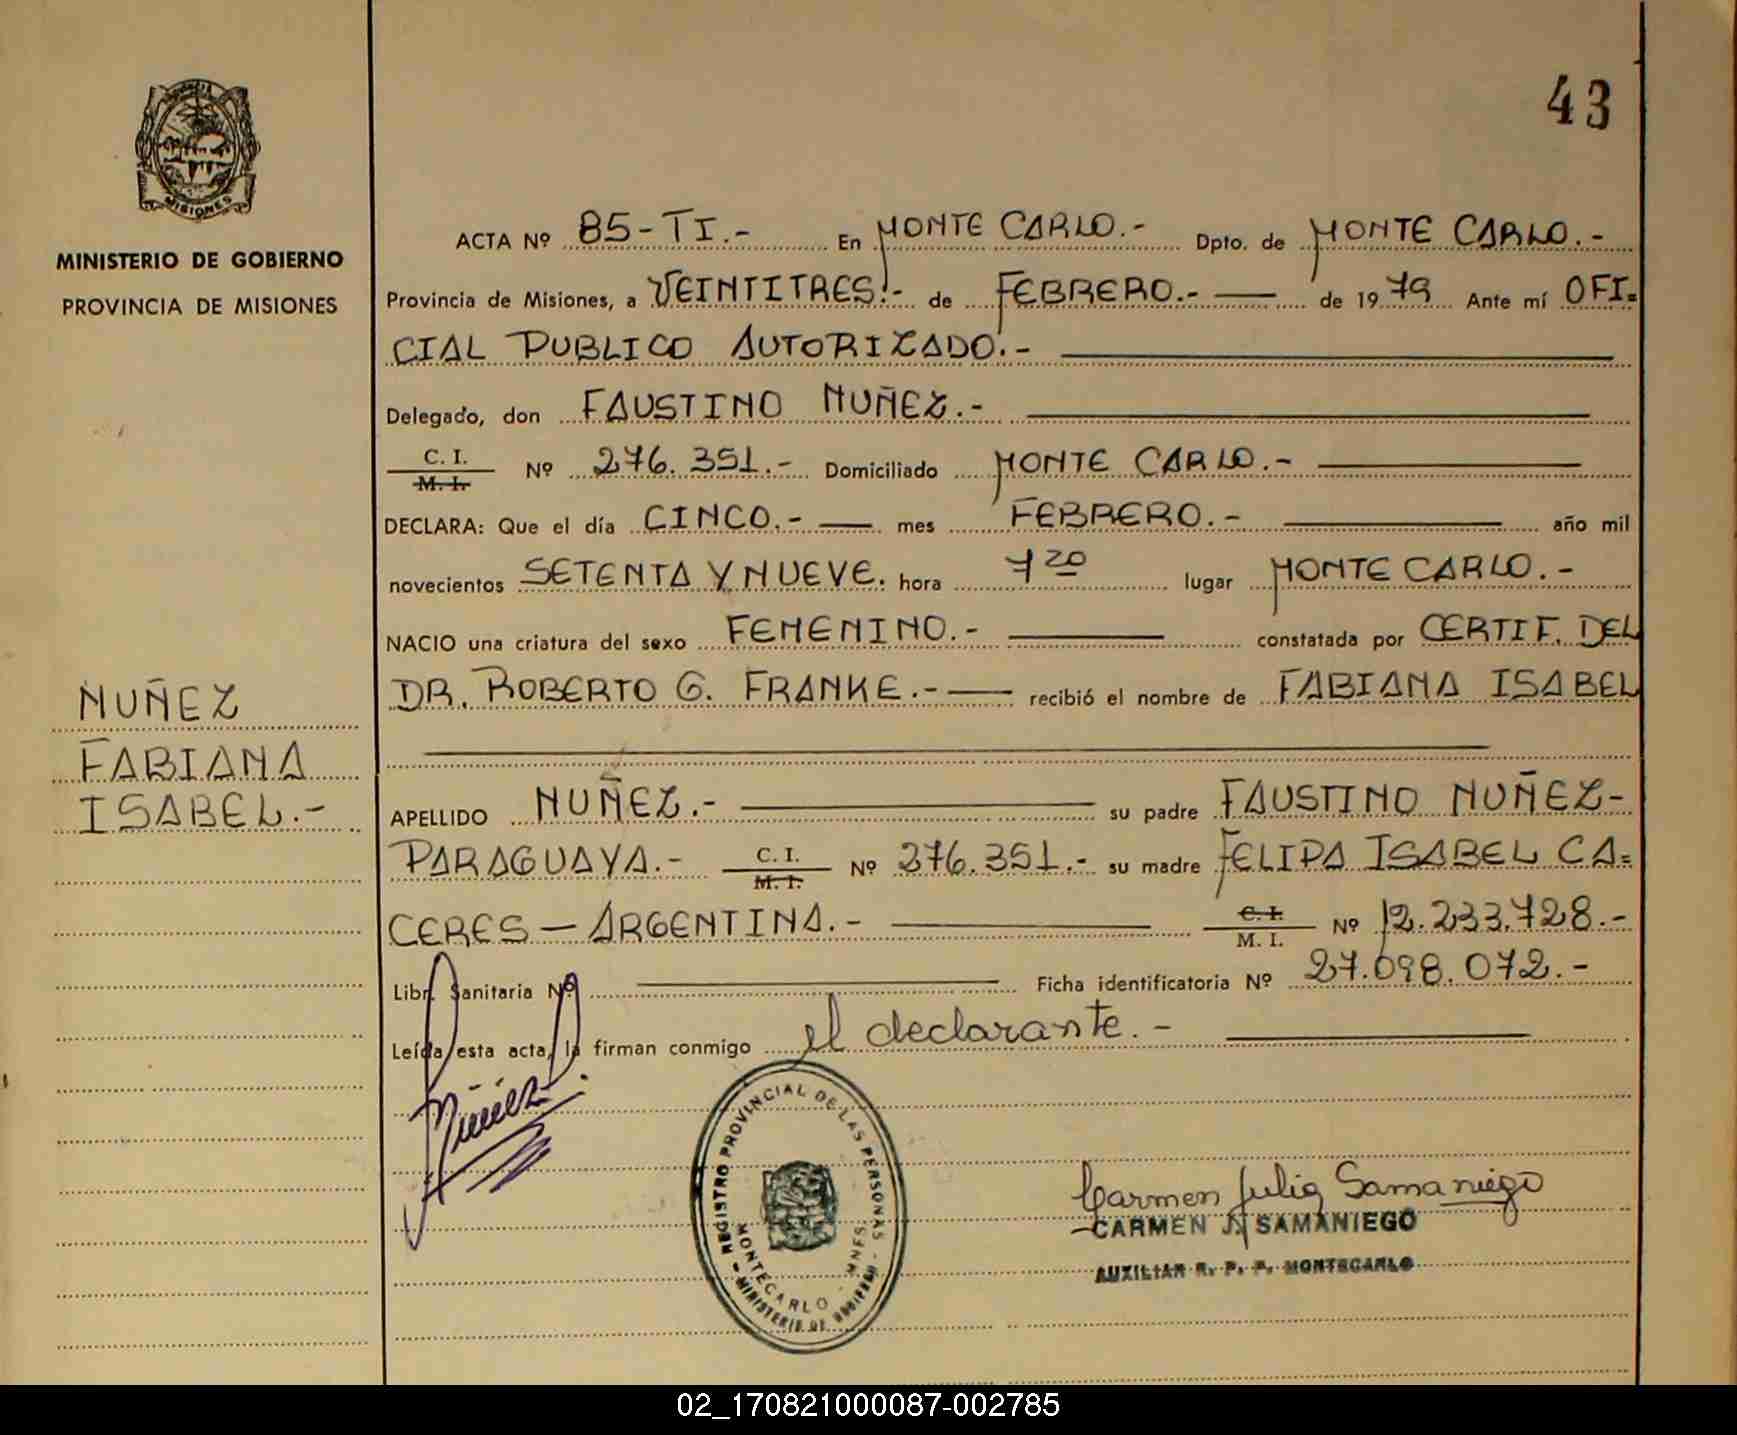 43
MINISTERIO DE GOBIERNO
PROVINCIA DE MISIONES
MISIONES
NUÑEZ
FABIANA
ISABEL.-
ACTA Nº 85-TI.- En MONTE CARLO.- Dpto. de MONTE CARLO.-
Provincia de Misiones, a VEINTITRES.- de FEBRERO.- de 1979 Ante mí OFI=
CIAL PUBLICO AUTORIZADO.-
Delegado, don FAUSTINO NUÑEZ.-
C. I.
M. I. Nº 276.351.- Domiciliado MONTE CARLO.-
DECLARA: Que el día CINCO.- mes FEBRERO.- año mil
novecientos SETENTA Y NUEVE. hora 7 20 lugar MONTE CARLO.-
NACIO una criatura del sexo FEMENINO.- constatada por CERTIF. DEL
DR. ROBERTO G. FRANKE.- recibió el nombre de FABIANA ISABEL
APELLIDO NUÑEZ.- su padre FAUSTINO NUÑEZ-
PARAGUAYA.- C. I.
M. I. Nº 276.351.- su madre FELIPA ISABEL CA=
CERES - ARGENTINA.- C. I.
M. I. Nº 12.233.728.-
Libr. Sanitaria Nº Ficha identificatoria Nº 27.098.072.-
Leída esta acta, la firman conmigo el declarante.-
Nuñez
REGISTRO PROVINCIAL DE LAS PERSONAS
MONTECARLO - MNES.
MINISTERIO DE GOBIERNO
Carmen Julia Samaniego
CARMEN J. SAMANIEGO
AUXILIAR R. P. P. MONTECARLO
02_170821000087-002785